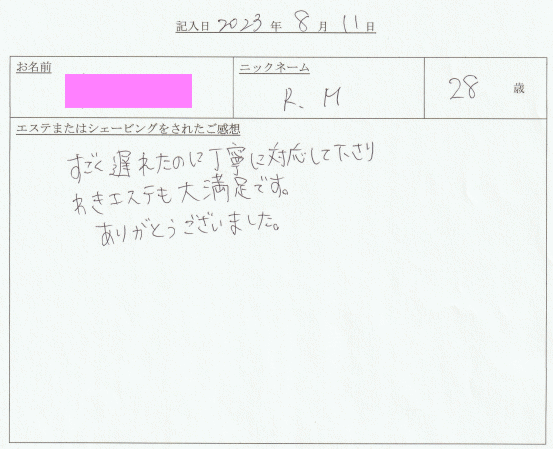 記入日 2023 年 8 月 11 日
お名前
ニックネーム
R. M
28 歳
エステまたはシェービングをされたご感想
すごく遅れたのに丁寧に対応して下さり
わきエステも大満足です。
ありがとうございました。